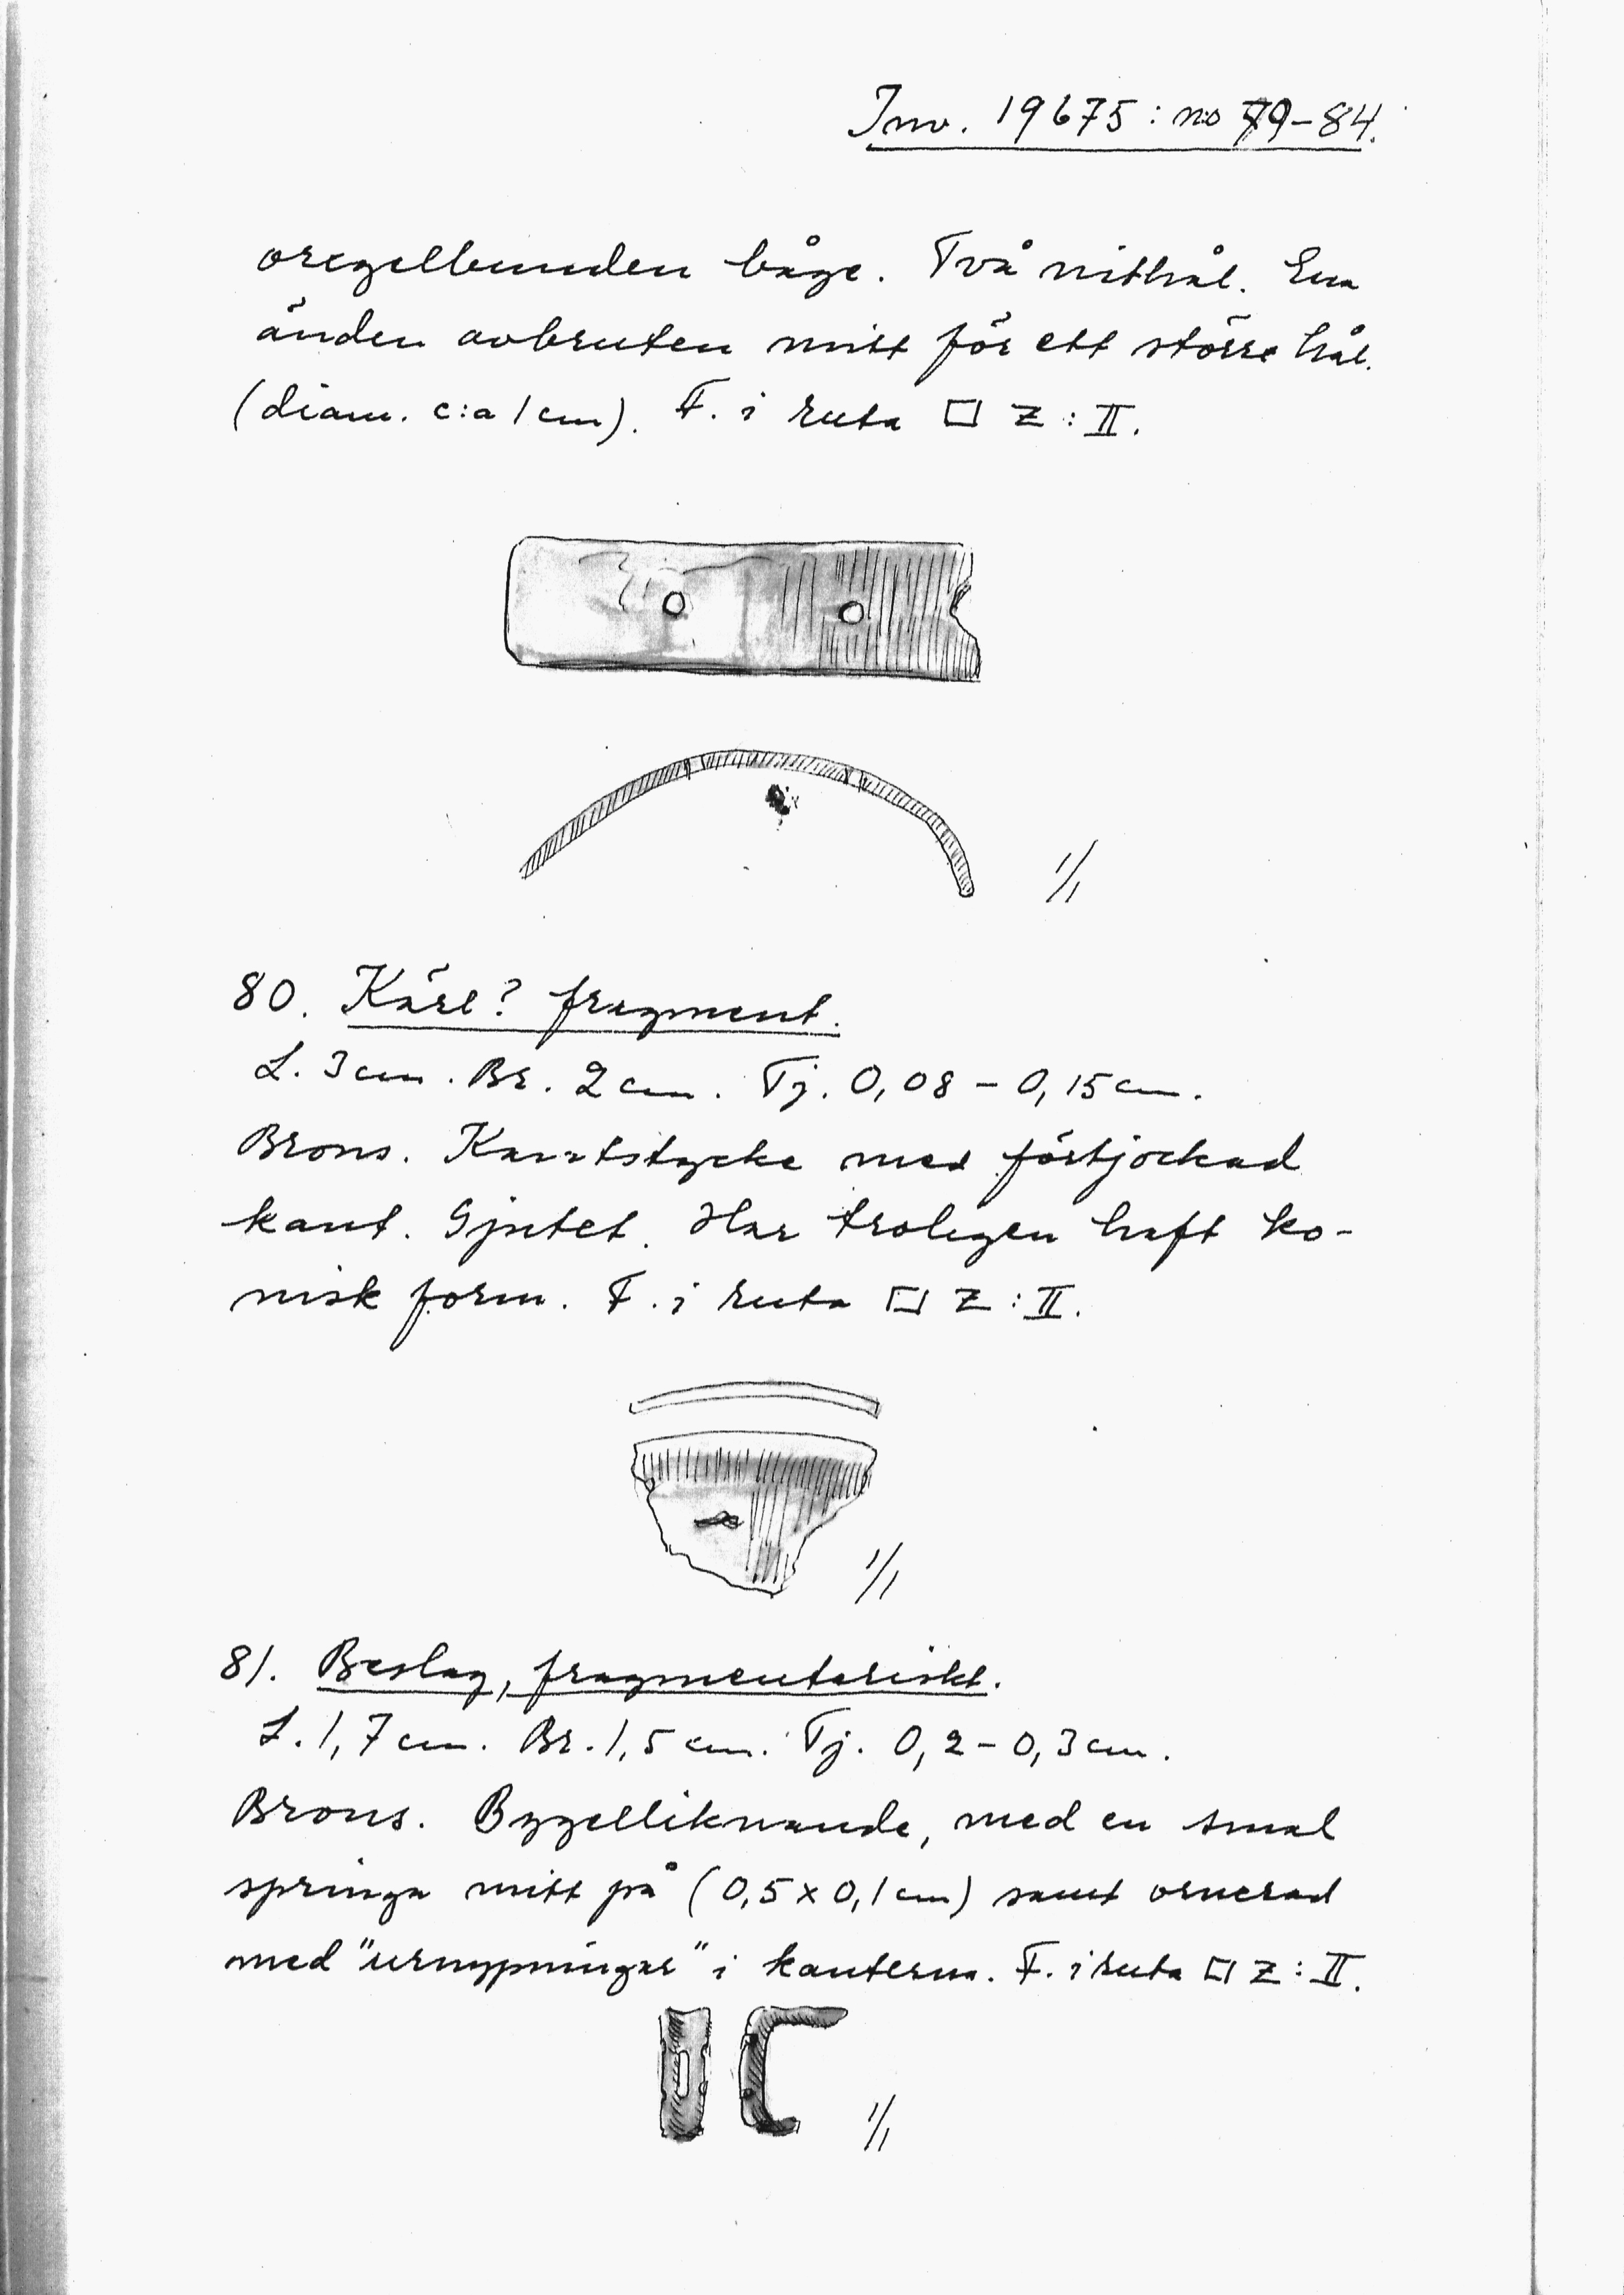 Inv. 19675: no 79-84.
oregelbunden båge. Två nithål. Ena
änden avbruten mitt för ett större hål.
(diam. c:a 1 cm). F. i ruta □ Z:II.
1/1
80. Kärl? fragment.
L. 3 cm. Br. 2 cm. Tj. 0,08 - 0,15 cm.
Brons. Kantstycke med förtjockad
kant. Gjutet. Har troligen haft ko-
nisk form. F. i ruta □ Z:II.
1/1
81. Beslag, fragmentariskt.
L. 1,7 cm. Br. 1,5 cm. Tj. 0,2 - 0,3 cm.
Brons. Bygelliknande, med en smal
springa mitt på (0,5 x 0,1 cm) samt ornerad
med "urnypningar" i kanterna. F. i ruta □ Z:II.
1/1